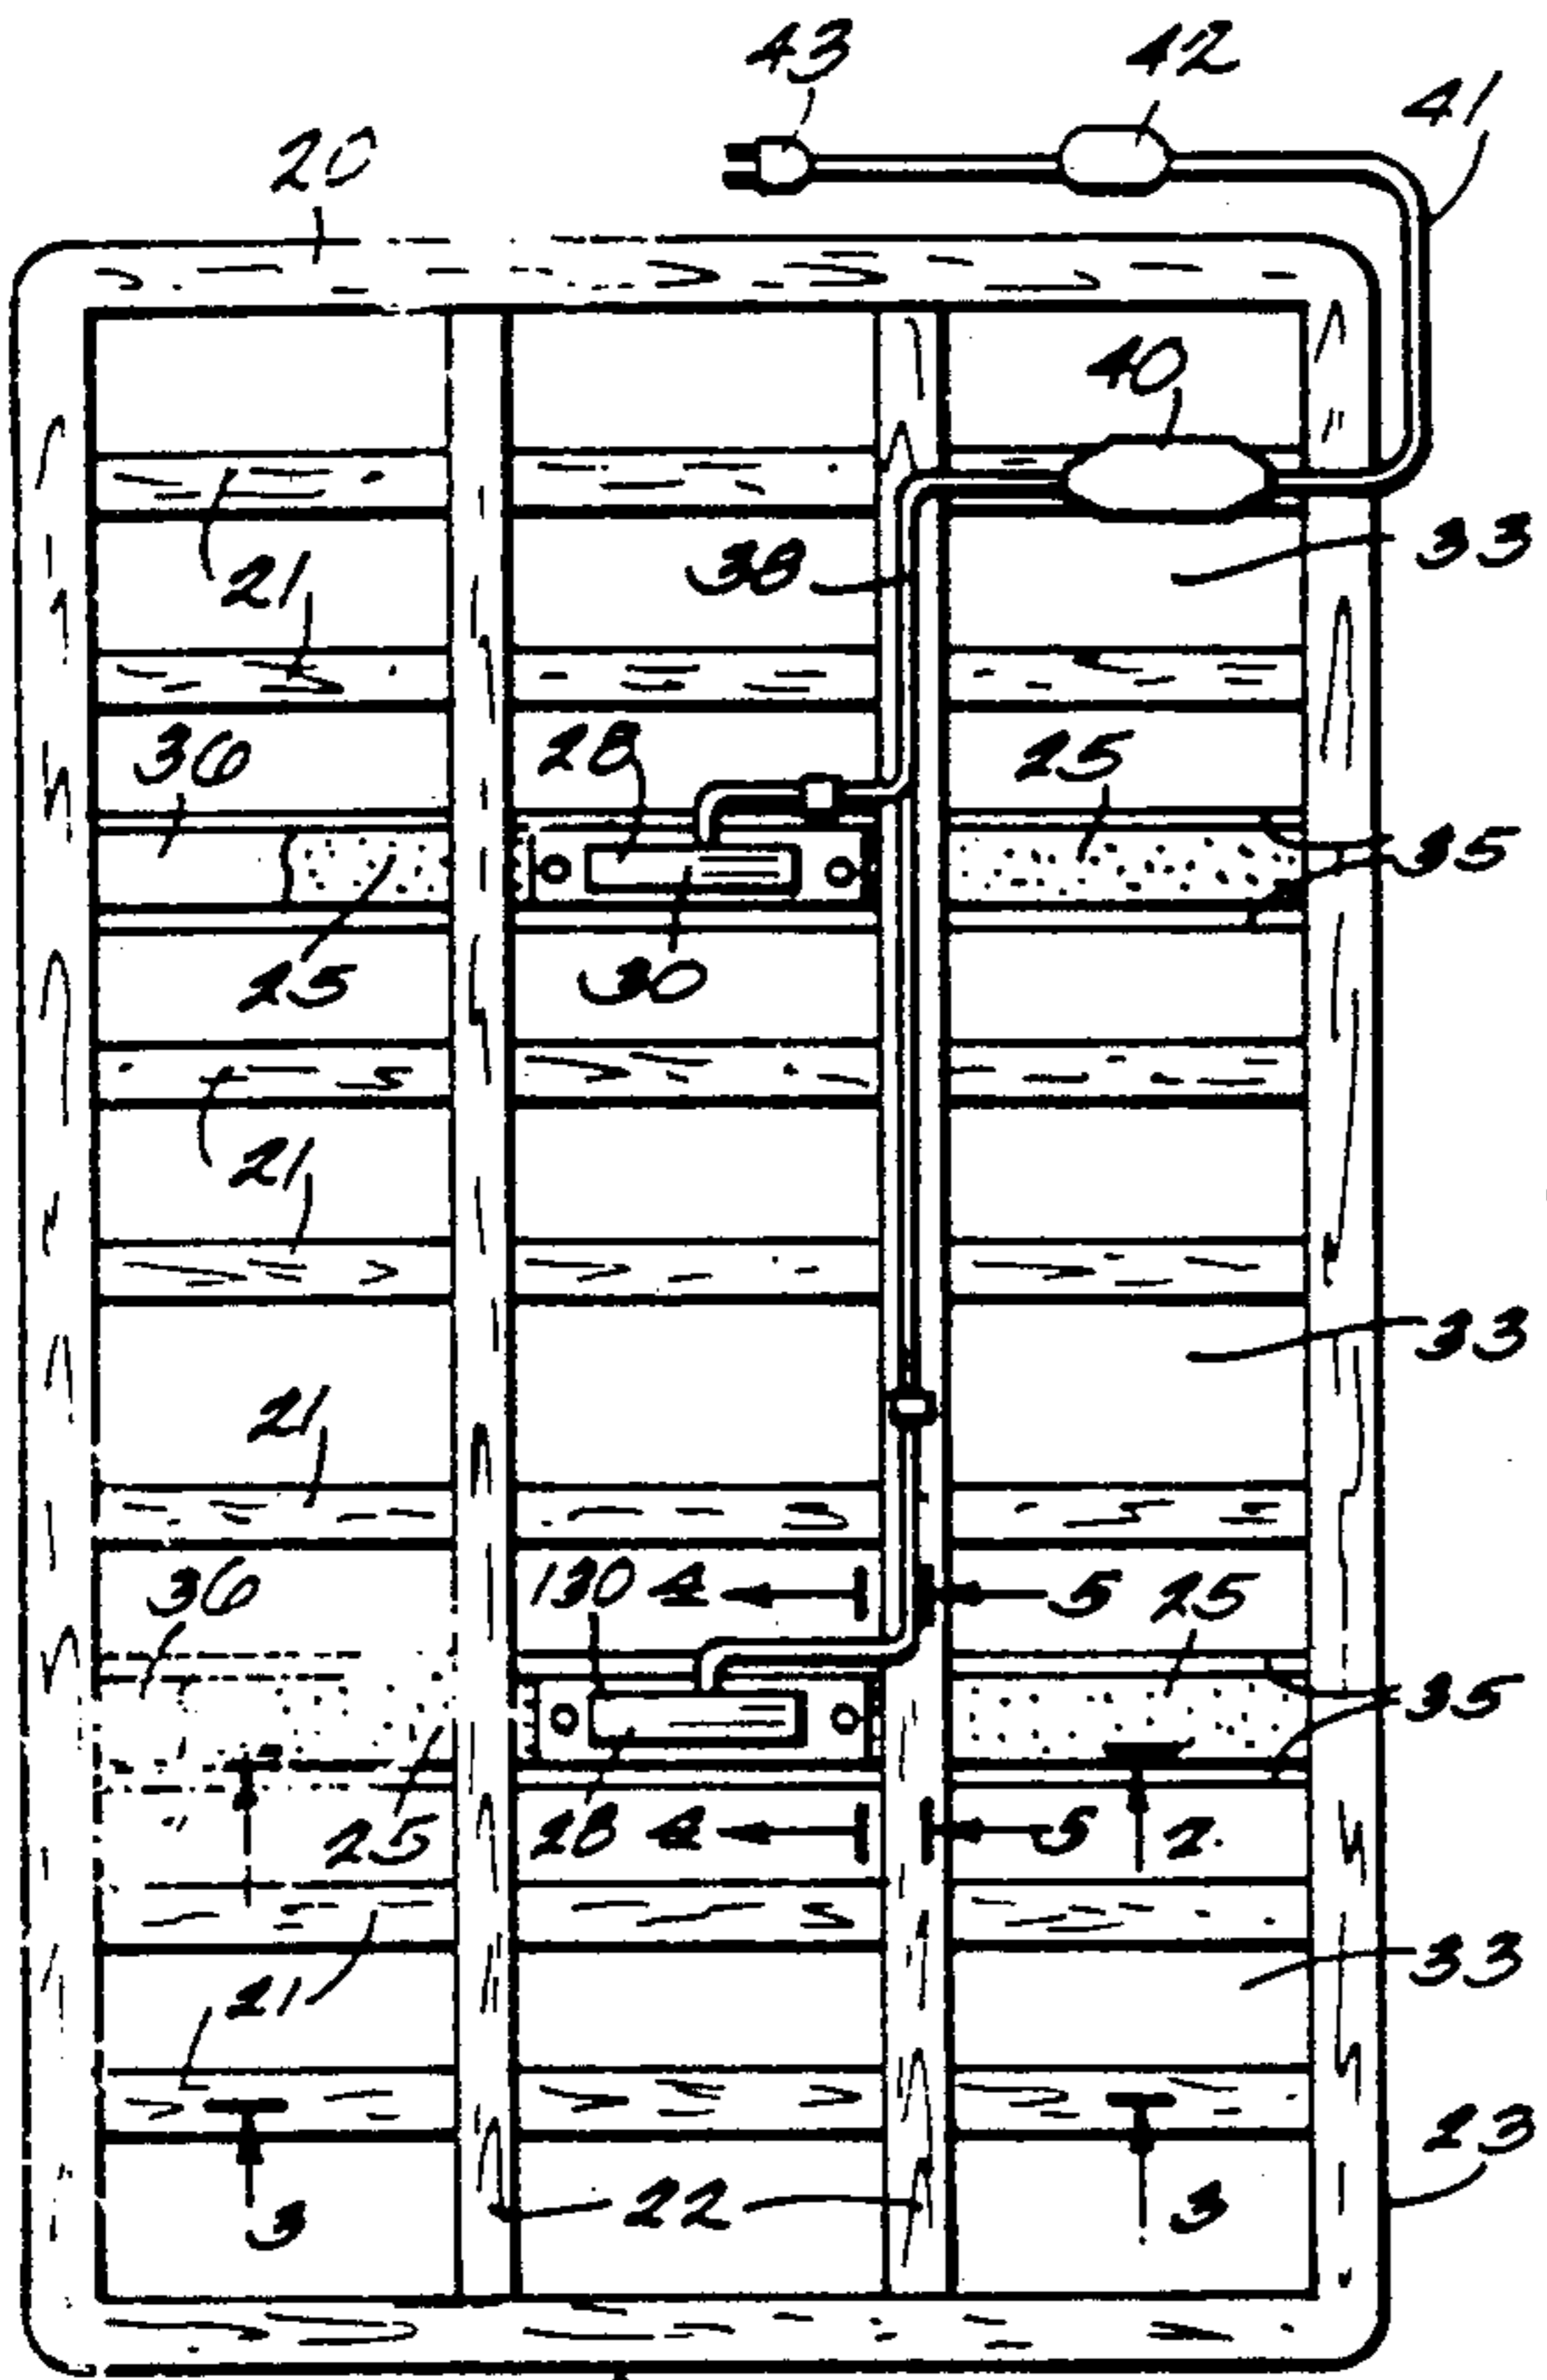 43 42 41
20
40
33
38
21
36 28 25
35
25 30
21
33
21
36 130 4 5 25
35
25 28 4 5 2
33
21
23
3 22 3